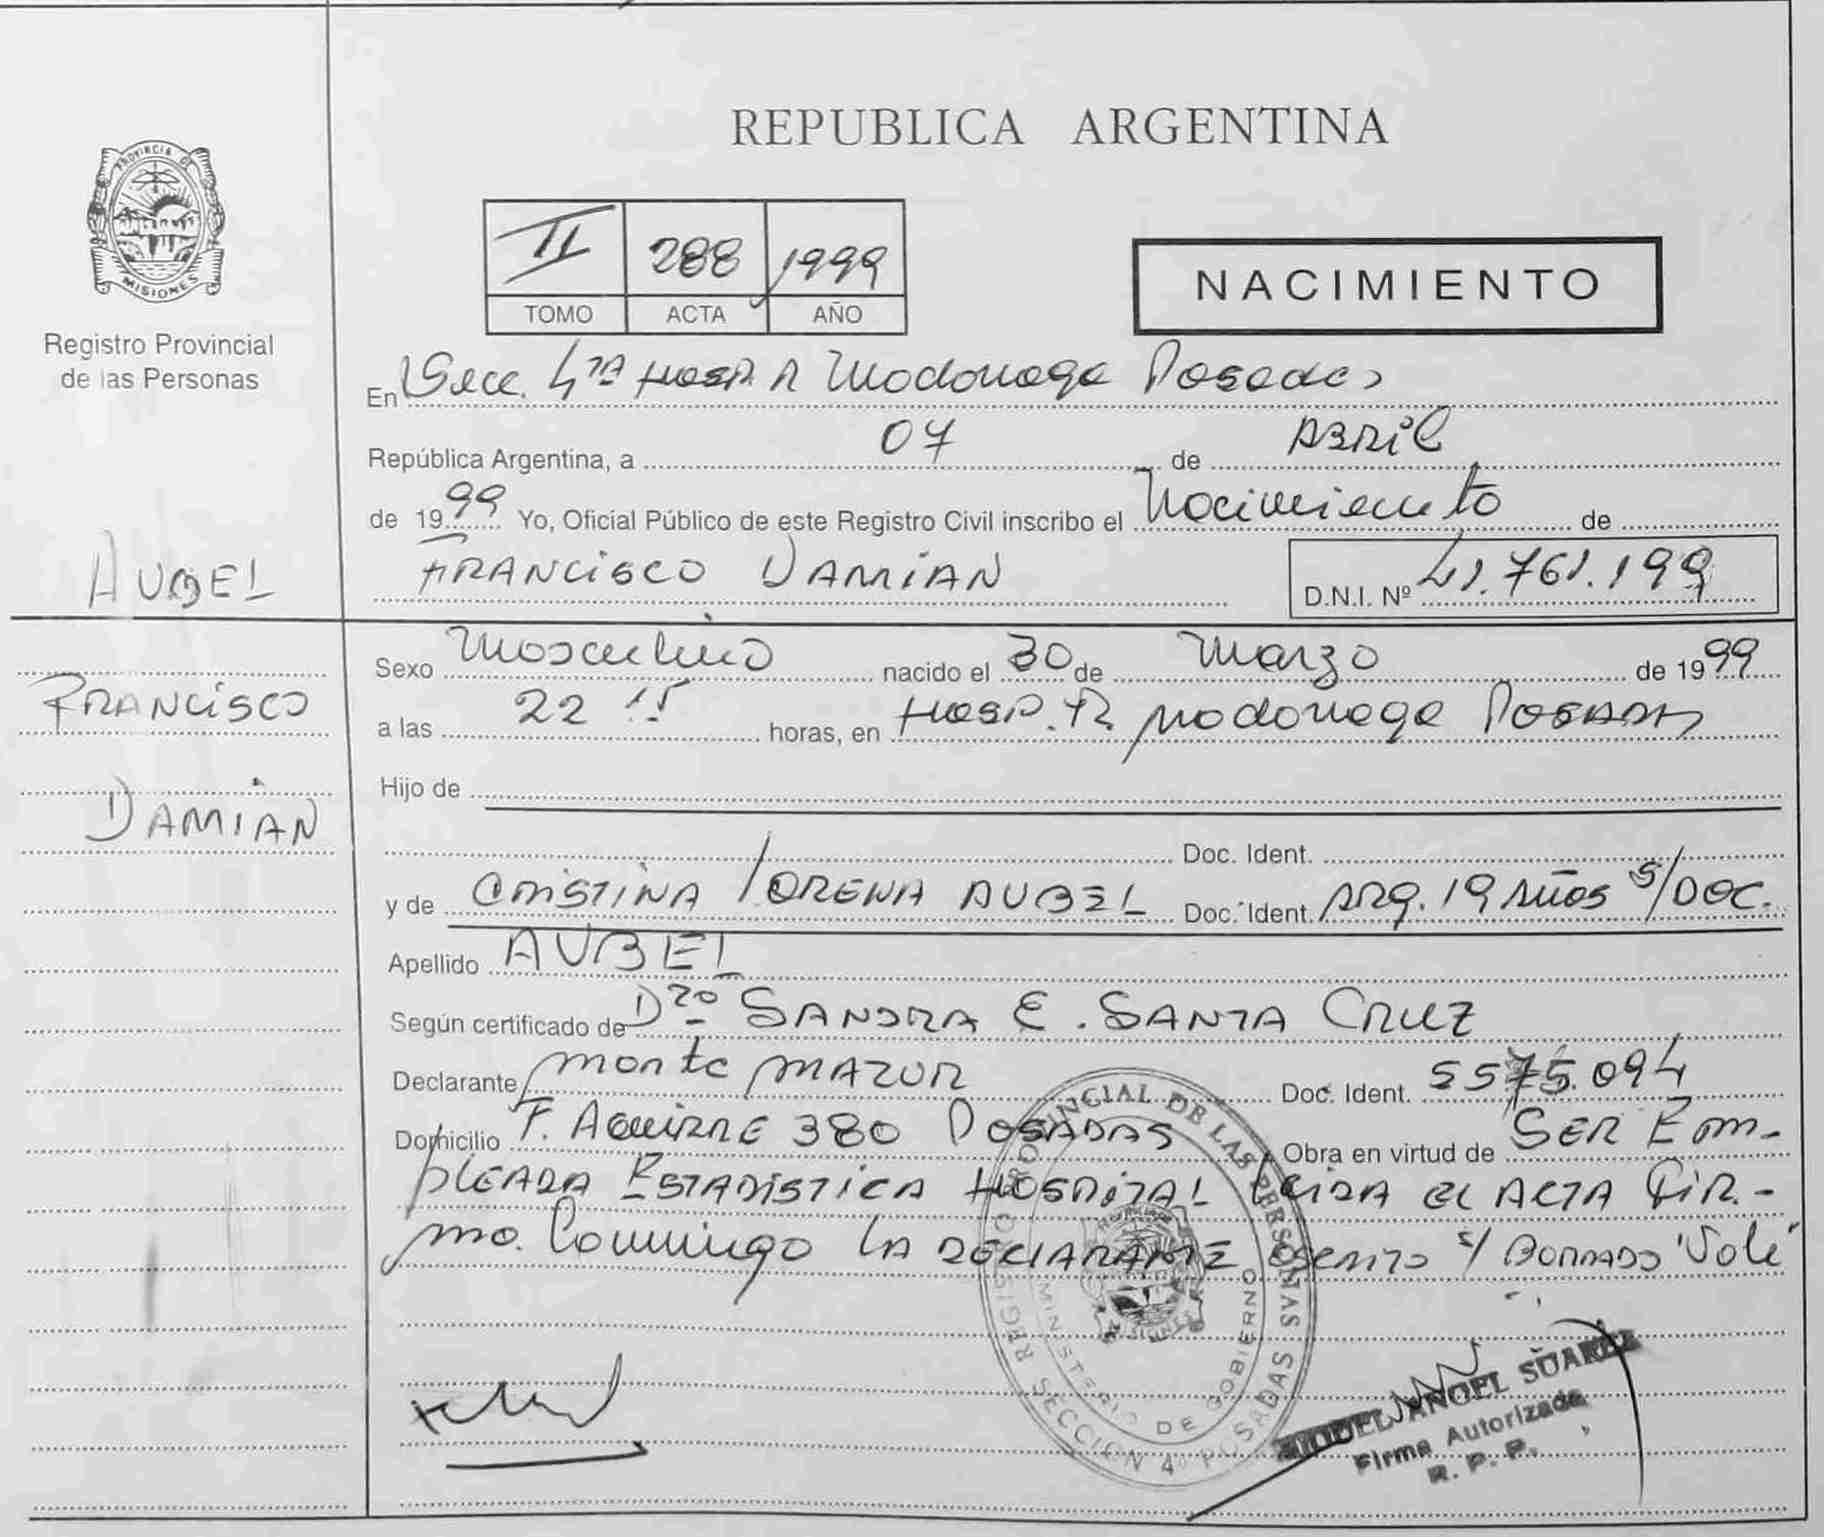 REPUBLICA ARGENTINA
PROVINCIA DE MISIONES
Registro Provincial
de las Personas
II 288 1999
TOMO ACTA AÑO
NACIMIENTO
En Secc. 4ta Hosp. R Madariaga Posadas
República Argentina, a 07 de ABRil
de 1999 Yo, Oficial Público de este Registro Civil inscribo el Nacimiento de
FRANCISCO DAMIAN D.N.I. Nº 41.761.199
AUBEL
FRANCISCO
DAMIAN
Sexo Masculino nacido el 30 de Marzo de 1999
a las 22 15 horas, en Hosp. R Madariaga POSADAS
Hijo de
Doc. Ident.
y de CRISTINA LORENA AUBEL Doc. Ident. ARg. 19 AÑOS S/DOC.
Apellido AUBEL
Según certificado de Dra SANDRA E. SANTA CRUZ
Declarante MAZUR Doc. Ident. 5575.094
Domicilio F. AGUIRRE 380 POSADAS Obra en virtud de SER Em-
pLEADA ESTADISTICA HOSPITAL LEIDA EL ACTA FIR-
ma Conmigo LA DECLARANTE ESCRITO S/ BORRADO "Vale"
REGISTRO PROVINCIAL DE LAS PERSONAS
MINISTERIO DE GOBIERNO
SECCION 4º POSADAS
ANGEL SUAREZ
Firma Autorizada
R. P. P.